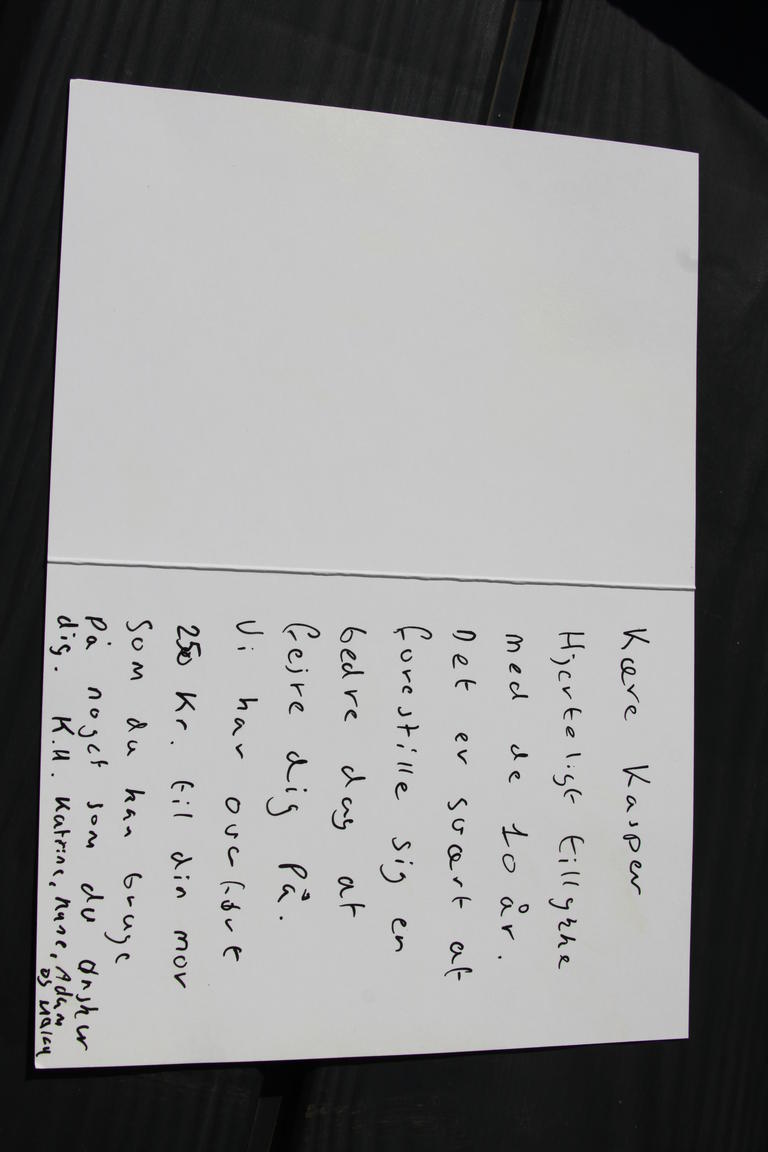 Kære Kasper
Hjerteligt tillykke
med de 10 år.
Det er svært at
forestille sig en
bedre dag at
fejre dig på.
Vi har overført
250 Kr. til din mor
Som du kan bruge
På noget som du ønsker
dig. K.H. Katrine, Rune, Adam
og